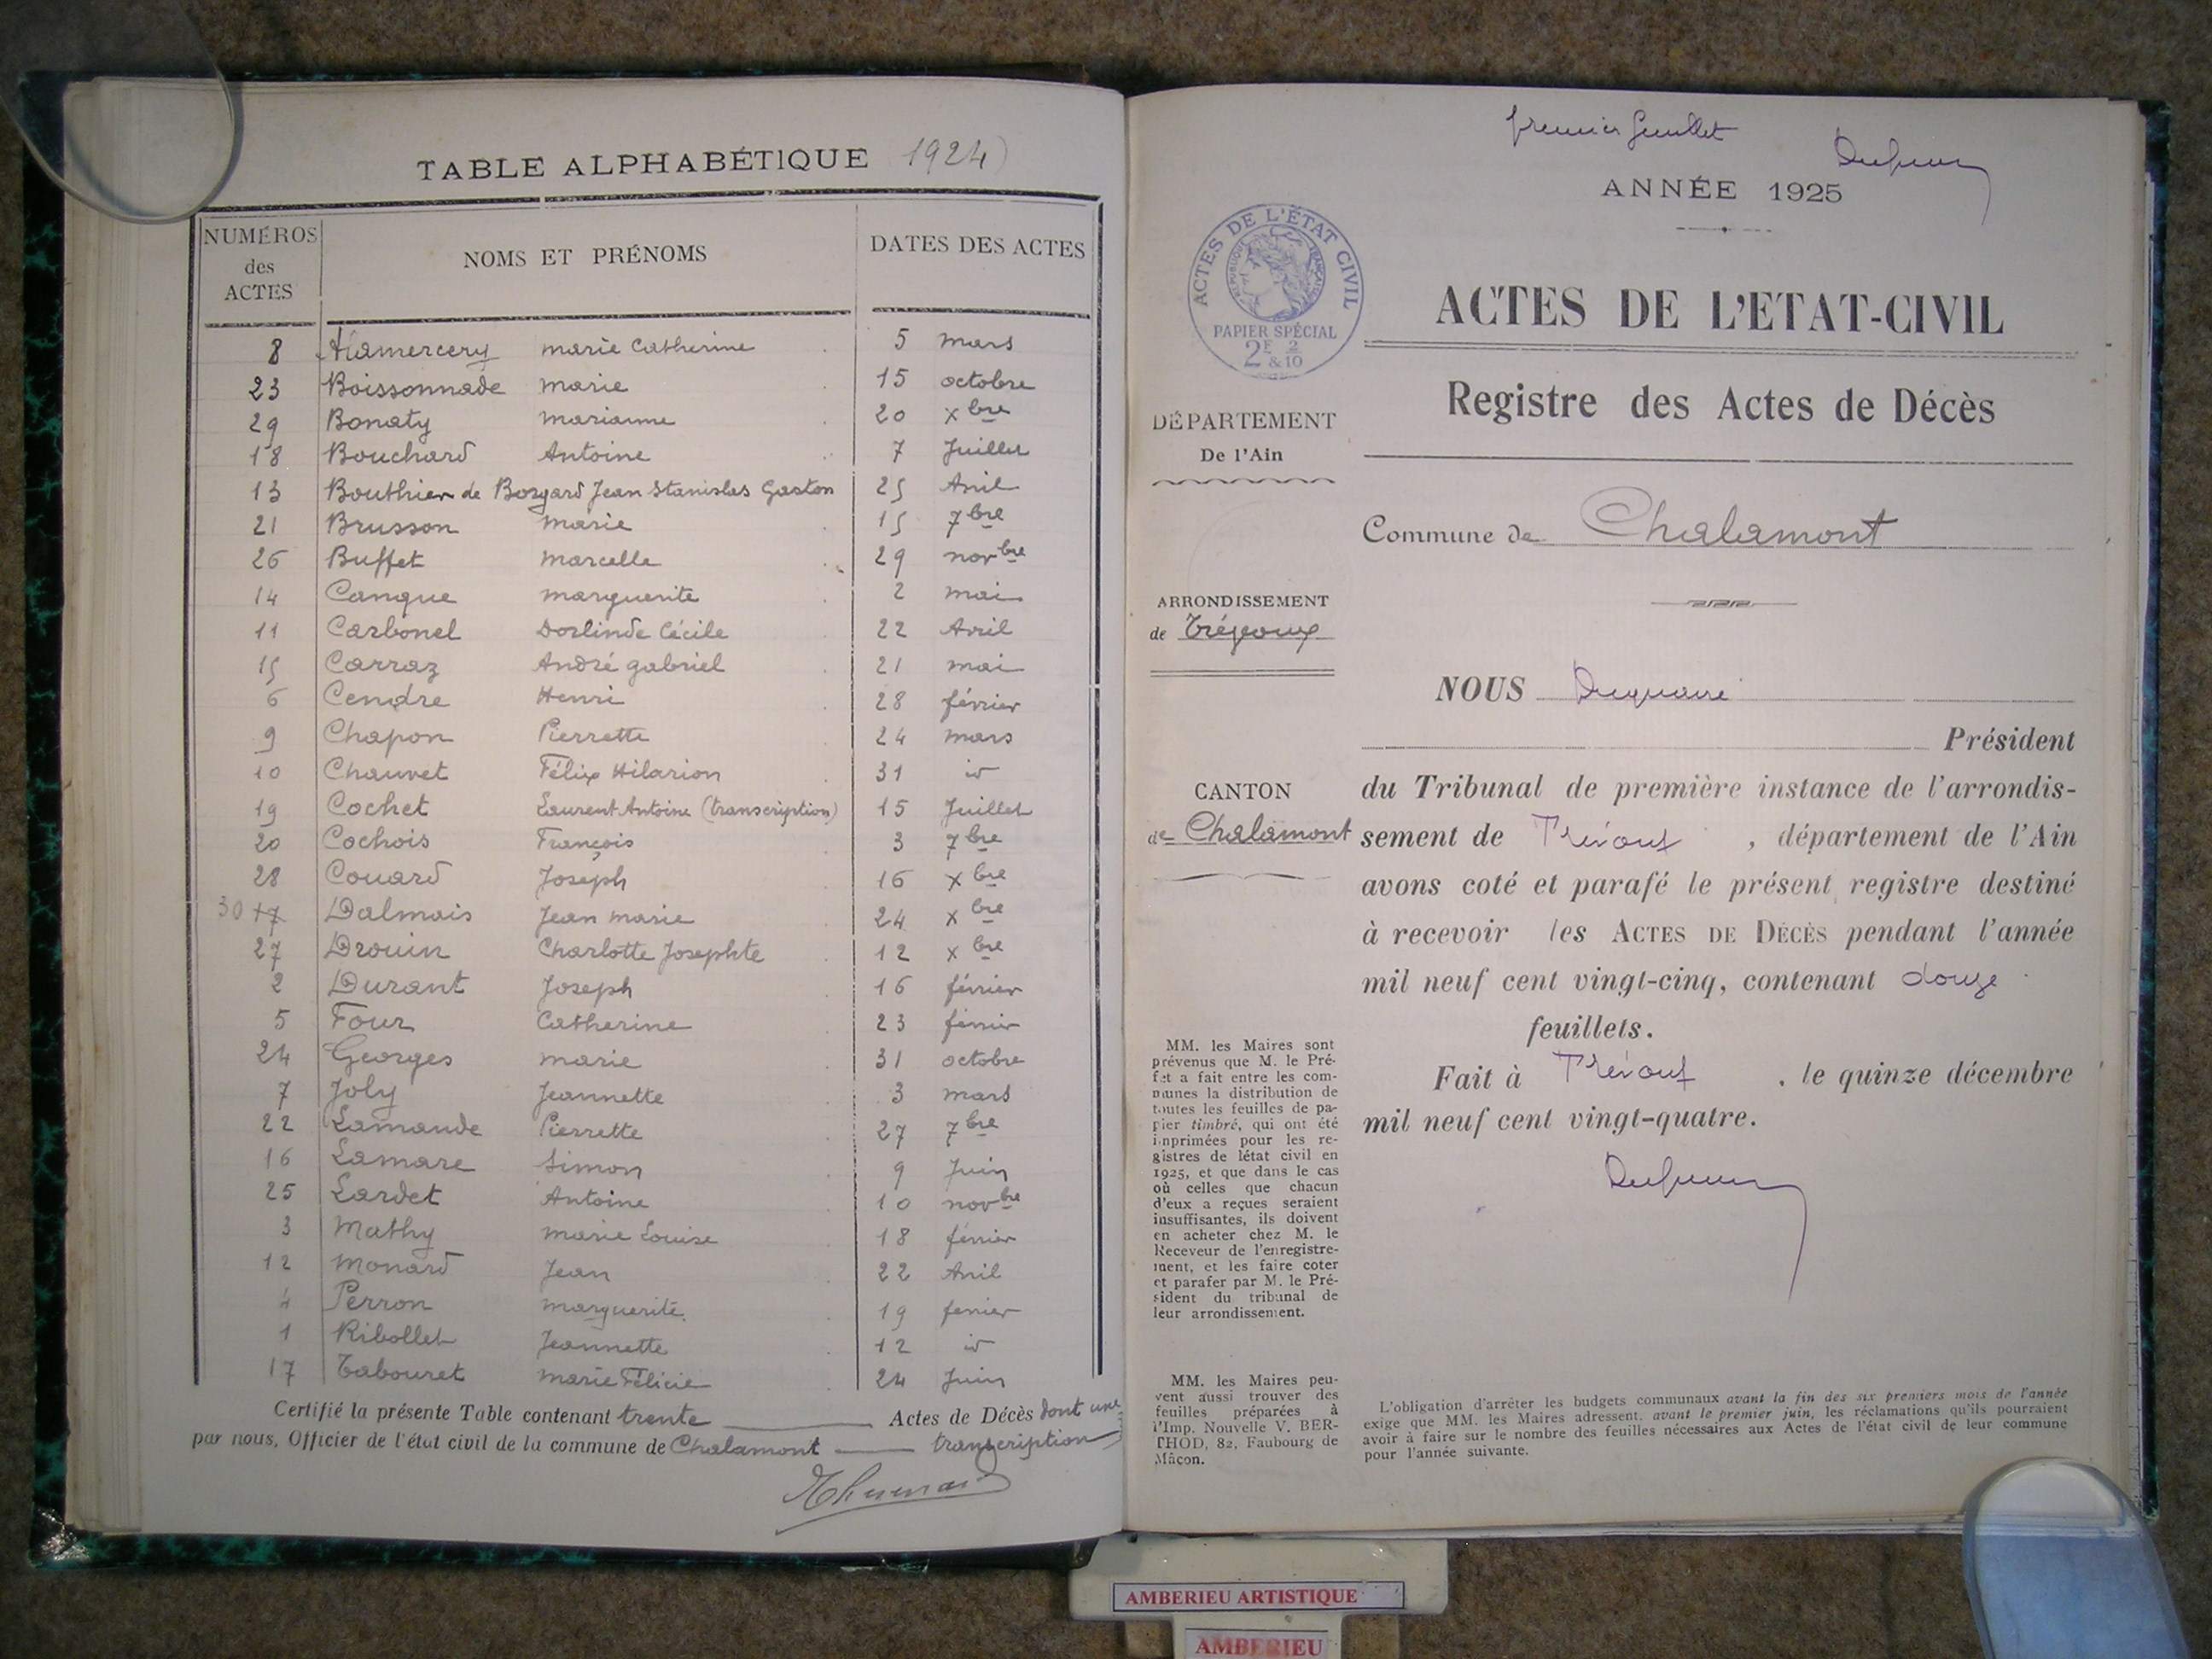 TABLE ALPHABÉTIQUE 1924
NUMÉROS des ACTES NOMS ET PRÉNOMS DATES DES ACTES
8 Alamercery marie Catherine 5 mars
23 Boissonnade marie 15 octobre
29 Bonaty marianne 20 xbre
18 Bouchard Antoine 7 Juillet
13 Bouthier de Jean Stanislas Gaston 25 Avril
21 Brusson marie 15 7bre
26 Buffet marcelle 29 novbre
14 Canque marguerite 2 mai
11 Carbonel Dorlinde Cécile 22 Avril
15 Carraz André gabriel 21 mai
6 Cendre Henri 28 février
9 Chapon Pierrette 24 mars
10 Chauvet Félix Hilarion 31 id
19 Cochet Laurent Antoine (transcription) 15 Juillet
20 Cochois François 3 7bre
28 Couard Joseph 16 xbre
30 17 Dalmais Jean marie 24 xbre
27 Drouin Charlotte Josephte 12 xbre
2 Durant Joseph 16 février
5 Four Catherine 23 février
24 Georges marie 31 octobre
7 Joly Jeannette 3 mars
22 Lamaude Pierrette 27 7bre
16 Lamare Simon 9 Juin
25 Lardet Antoine 10 novbre
3 Mathy marie Louise 18 février
12 Monard Jean 22 Avril
4 Perron marguerite 19 février
1 Ribollet Jeannette 12 id
17 Tabouret marie Félicie 24 Juin
Certifié la présente Table contenant trente Actes de Décès dont une
par nous, Officier de l'état civil de la commune de Chalamont transcription
premier feuillet
ANNÉE 1925
ACTES DE L'ÉTAT CIVIL
RÉPUBLIQUE FRANÇAISE
PAPIER SPÉCIAL
2F 2/10
&10
ACTES DE L'ETAT-CIVIL
Registre des Actes de Décès
DÉPARTEMENT
De l'Ain
Commune de Chalamont
ARRONDISSEMENT
de Trévoux
CANTON
de Chalamont
NOUS
Président
du Tribunal de première instance de l'arrondis-
sement de Trévoux, département de l'Ain
avons coté et parafé le présent registre destiné
à recevoir les ACTES DE DÉCÈS pendant l'année
mil neuf cent vingt-cinq, contenant douze
feuillets.
Fait à Trévoux, le quinze décembre
mil neuf cent vingt-quatre.
MM. les Maires sont
prévenus que M. le Pré-
fet a fait entre les com-
munes la distribution de
toutes les feuilles de pa-
pier timbré, qui ont été
imprimées pour les re-
gistres de létat civil en
1925, et que dans le cas
où celles que chacun
d'eux a reçues seraient
insuffisantes, ils doivent
en acheter chez M. le
Receveur de l'enregistre-
ment, et les faire coter
et parafer par M. le Pré-
sident du tribunal de
leur arrondissement.
MM. les Maires peu-
vent aussi trouver des
feuilles préparées à
l'Imp. Nouvelle V. BER-
THOD, 82, Faubourg de
Mâcon.
L'obligation d'arrêter les budgets communaux avant la fin des six premiers mois de l'année
exige que MM. les Maires adressent, avant le premier juin, les réclamations qu'ils pourraient
avoir à faire sur le nombre des feuilles nécessaires aux Actes de l'état civil de leur commune
pour l'année suivante.
AMBERIEU ARTISTIQUE
AMBERIEU